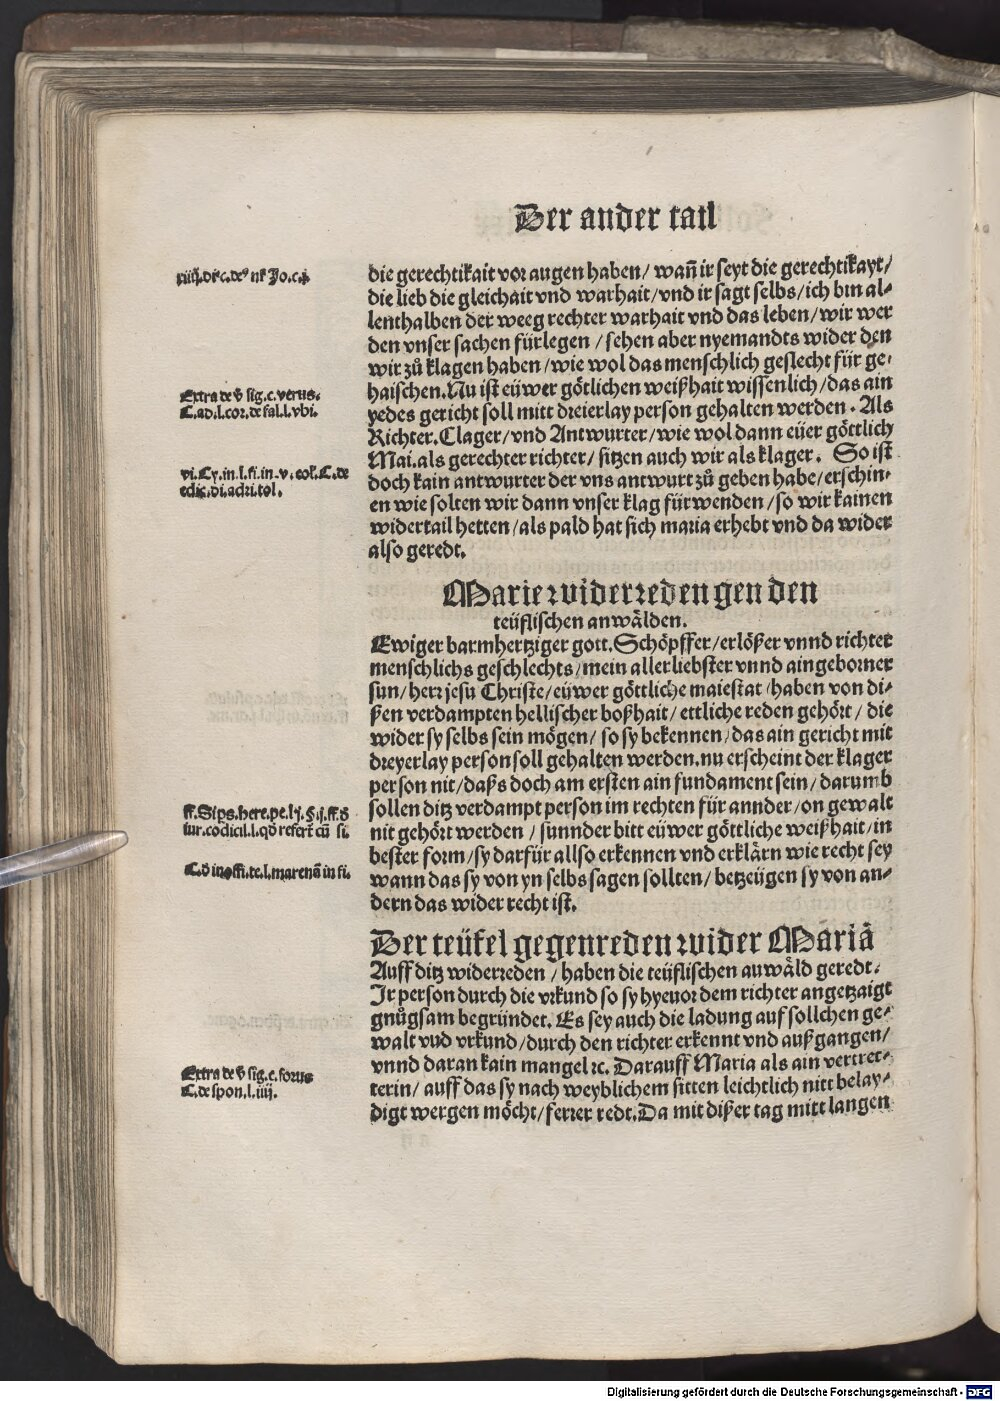 Der ander tail
die gerechtikait vor augen haben/ wañ ir seyt die gerechtikayt/
die lieb die gleichait vnd warhait/vnd ir sagt selbs/ich bin al-
lenthalben der weeg rechter warhait vnd das leben/wir wer
den vnser sachen fürlegen /sehen aber nyemandts wider den
wir zů klagen haben/wie wol das menschlich geslecht für ge-
haischen.Nu ist eüwer götlichen weißhait wissenlich/das ain
yedes gericht soll mitt dreierlay person gehalten werden. Als
Richter.Clager/vnd Antwurter/wie wol dann eüer göttlich
Mai.als gerechter richter/ sitzen auch wir als klager. So ist
doch kain antwurter der vns antwurt zů geben habe/erschin-
en wie solten wir dann vnser klag fürwenden/so wir kainen
widertail hetten/als pald hat sich maria erhebt vnd da wider
also geredt.
Extra de v̄ sig.c.verus.
C.ad.l.cor.de fal.l.vbi.
edic.di.adri.tol.
Marie widerreden gen den
teüflischen anwälden.
Ewiger barmhertziger gott.Schöpffer/erlößer vnnd richter
menschlichs geschlechts/mein allerliebster vnnd aingeborner
sun/herr jesu Christe/eüwer göttliche maiestat/haben von di-
ßen verdampten hellischer boßhait/ettliche reden gehört/ die
wider sy selbs sein mögen/ so sy bekennen/das ain gericht mit
dreyerlay person soll gehalten werden.nu erscheint der klager
person nit/daßs doch am ersten ain fundament sein/darumb
sollen ditz verdampt person im rechten für annder/on gewalt
nit gehört werden /sunnder bitt eüwer göttliche weißhait/in
bester form/sy darfür allso erkennen vnd erklärn wie recht sey
wann das sy von yn selbs sagen sollten/ betzeügen sy von an-
dern das wider recht ist.
Der teüfel gegenreden wider Mariā
Auff ditz widerreden /haben die teüflischen anwäld geredt.
Ir person durch die vrkund so sy hyeuor dem richter angetzaigt
gnůgsam begründet. Es sey auch die ladung auf sollchen ge-
walt vnd vrkund/durch den richter erkennt vnd außgangen/
vnnd daran kain mangel ꝛc. Darauff Maria als ain vertret-
terin/ auff das sy nach weyblichem sitten leichtlich nitt belay-
digt wergen möcht/ferrer redt.Da mit dißer tag mitt langen
Extra de v̄ sig.c.forus
C.de spon.l.iiij.
Digitalisierung gefördert durch die Deutsche Forschungsgemeinschaft - DFG